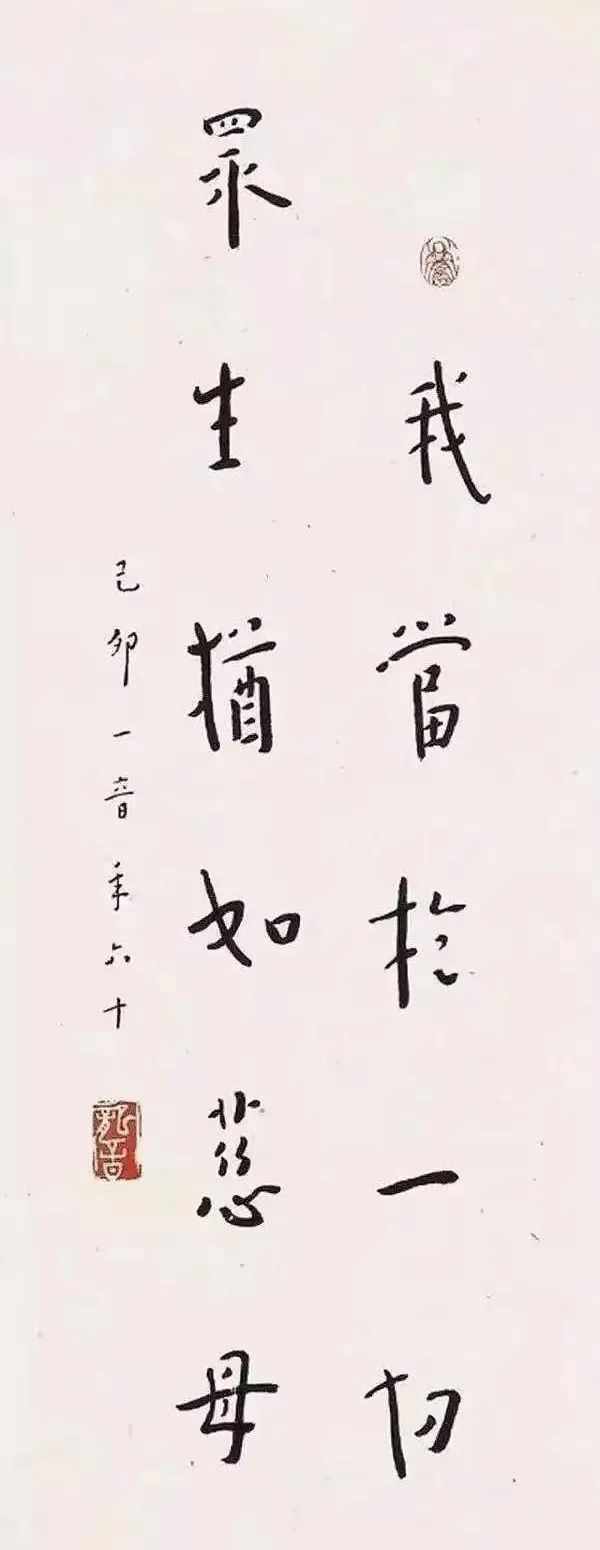 我當於一切
眾生猶如慈母
己卯一音年六十
弘一